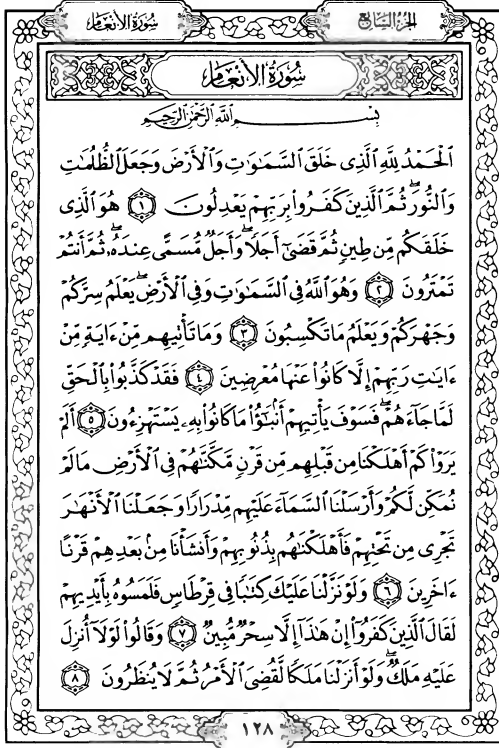 سُورَةُ الْأَنْعَامِ
الجُزءُ السَّابِعُ
سُورَةُ الْأَنْعَامِ
بِسْمِ اللَّهِ الرَّحْمَٰنِ الرَّحِيمِ
ٱلْحَمْدُ لِلَّهِ ٱلَّذِى خَلَقَ ٱلسَّمَٰوَٰتِ وَٱلْأَرْضَ وَجَعَلَ ٱلظُّلُمَٰتِ
وَٱلنُّورَ ۖ ثُمَّ ٱلَّذِينَ كَفَرُوا۟ بِرَبِّهِمْ يَعْدِلُونَ ١ هُوَ ٱلَّذِى
خَلَقَكُم مِّن طِينٍ ثُمَّ قَضَىٰٓ أَجَلًا ۖ وَأَجَلٌ مُّسَمًّى عِندَهُۥ ۖ ثُمَّ أَنتُمْ
تَمْتَرُونَ ٢ وَهُوَ ٱللَّهُ فِى ٱلسَّمَٰوَٰتِ وَفِى ٱلْأَرْضِ ۖ يَعْلَمُ سِرَّكُمْ
وَجَهْرَكُمْ وَيَعْلَمُ مَا تَكْسِبُونَ ٣ وَمَا تَأْتِيهِم مِّنْ ءَايَةٍ مِّنْ
ءَايَٰتِ رَبِّهِمْ إِلَّا كَانُوا۟ عَنْهَا مُعْرِضِينَ ٤ فَقَدْ كَذَّبُوا۟ بِٱلْحَقِّ
لَمَّا جَآءَهُمْ ۖ فَسَوْفَ يَأْتِيهِمْ أَنۢبَٰٓؤُا۟ مَا كَانُوا۟ بِهِۦ يَسْتَهْزِءُونَ ٥ أَلَمْ
يَرَوْا۟ كَمْ أَهْلَكْنَا مِن قَبْلِهِم مِّن قَرْنٍ مَّكَّنَّٰهُمْ فِى ٱلْأَرْضِ مَا لَمْ
نُمَكِّن لَّكُمْ وَأَرْسَلْنَا ٱلسَّمَآءَ عَلَيْهِم مِّدْرَارًا وَجَعَلْنَا ٱلْأَنْهَٰرَ
تَجْرِى مِن تَحْتِهِمْ فَأَهْلَكْنَٰهُم بِذُنُوبِهِمْ وَأَنشَأْنَا مِنۢ بَعْدِهِمْ قَرْنًا
ءَاخَرِينَ ٦ وَلَوْ نَزَّلْنَا عَلَيْكَ كِتَٰبًا فِى قِرْطَاسٍ فَلَمَسُوهُ بِأَيْدِيهِمْ
لَقَالَ ٱلَّذِينَ كَفَرُوٓا۟ إِنْ هَٰذَآ إِلَّا سِحْرٌ مُّبِينٌ ٧ وَقَالُوا۟ لَوْلَآ أُنزِلَ
عَلَيْهِ مَلَكٌ ۖ وَلَوْ أَنزَلْنَا مَلَكًا لَّقُضِىَ ٱلْأَمْرُ ثُمَّ لَا يُنظَرُونَ ٨
١٢٨